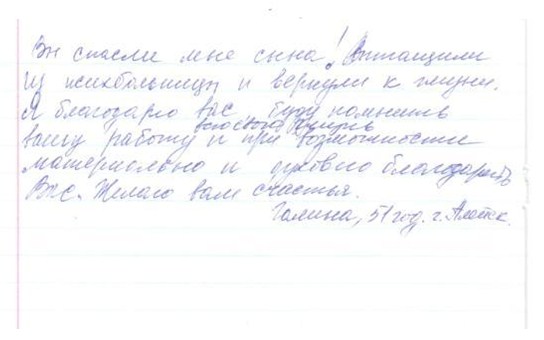 Вы спасли мне сына! Вытащили
из психбольницы и вернули к жизни.
Я благодарю вас, буду помнить
всю свою жизнь
вашу работу и при возможности
материально и духовно благодарить
Вас. Желаю вам счастья.
Галина, 51 год. г. Алейск.